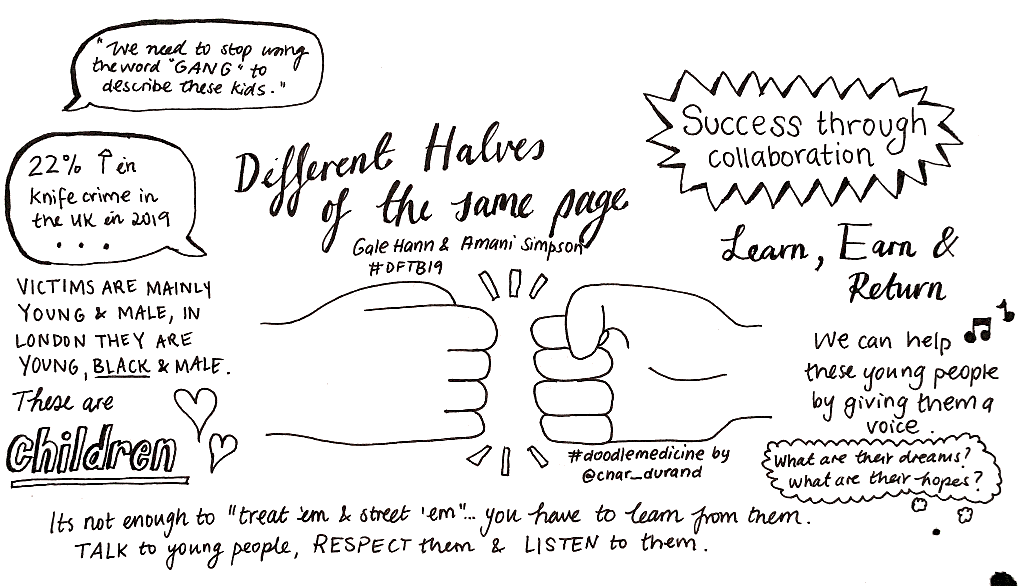 "We need to stop using
the word "GANG" to
describe these kids."
22% ↑ in
knife crime in
the UK in 2019
...
VICTIMS ARE MAINLY
YOUNG & MALE, IN
LONDON THEY ARE
YOUNG, BLACK & MALE.
These are
children
Different Halves
of the same page
Gale Hann & Amani Simpson
#DFTB19
Success through
collaboration
Learn, Earn &
Return
We can help
these young people
by giving them a
voice.
What are their dreams?
what are their hopes?
#doodlemedicine by
@char_durand
Its not enough to "treat 'em & street 'em"... you have to learn from them.
TALK to young people, RESPECT them & LISTEN to them.